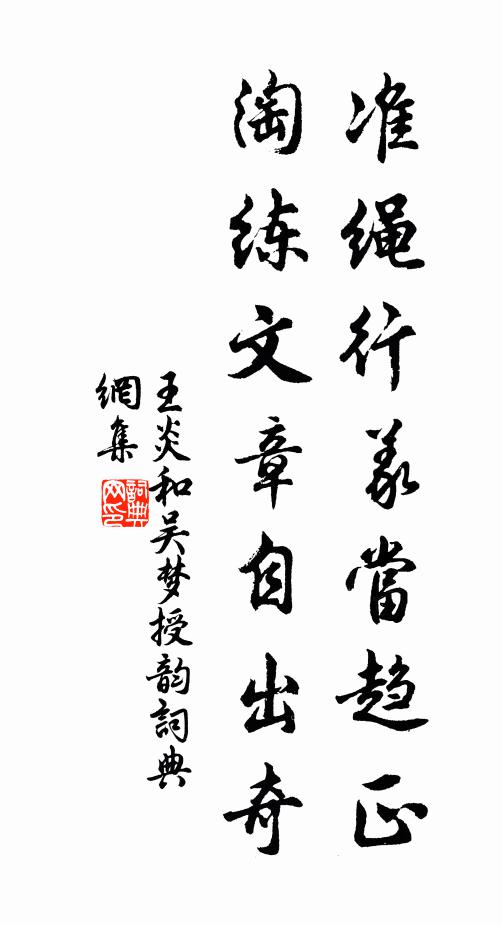 准绳行义當趋正
淘练文章自出奇
王炎和吴梦授韵詞典
網集
詞典
网印